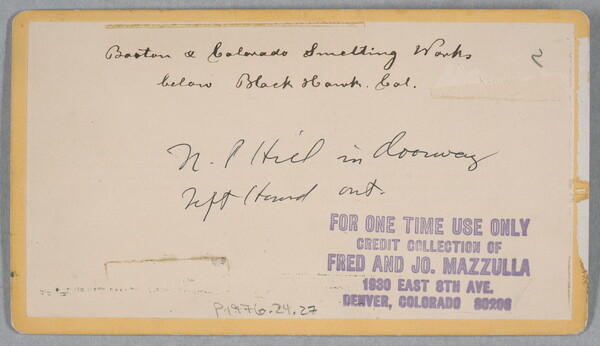 Boston & Colorado Smelting Works
2
below Black Hawk. Col.
N. P Hill in doorway
left Hand out.
FOR ONE TIME USE ONLY
CREDIT COLLECTION OF
FRED AND JO. MAZZULLA
1930 EAST 8TH AVE.
DENVER, COLORADO 80206
P1976.24.27